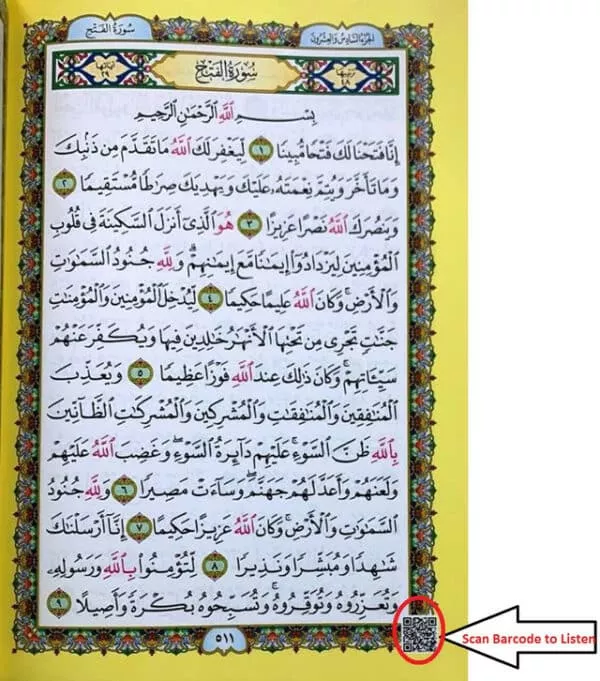 سُورَةُ الفَتۡحِ
الجُزۡءُ السَّادِسُ وَالعِشۡرُونَ
ترتيبها ٤٨
سُورَةُ الفَتۡحِ
آياتها ٢٩
بِسۡمِ ٱللَّهِ ٱلرَّحۡمَٰنِ ٱلرَّحِيمِ
إِنَّا فَتَحۡنَا لَكَ فَتۡحٗا مُّبِينٗا ١ لِّيَغۡفِرَ لَكَ ٱللَّهُ مَا تَقَدَّمَ مِن ذَنۢبِكَ
وَمَا تَأَخَّرَ وَيُتِمَّ نِعۡمَتَهُۥ عَلَيۡكَ وَيَهۡدِيَكَ صِرَٰطٗا مُّسۡتَقِيمٗا ٢
وَيَنصُرَكَ ٱللَّهُ نَصۡرًا عَزِيزًا ٣ هُوَ ٱلَّذِيٓ أَنزَلَ ٱلسَّكِينَةَ فِي قُلُوبِ
ٱلۡمُؤۡمِنِينَ لِيَزۡدَادُوٓاْ إِيمَٰنٗا مَّعَ إِيمَٰنِهِمۡۗ وَلِلَّهِ جُنُودُ ٱلسَّمَٰوَٰتِ
وَٱلۡأَرۡضِۚ وَكَانَ ٱللَّهُ عَلِيمًا حَكِيمٗا ٤ لِّيُدۡخِلَ ٱلۡمُؤۡمِنِينَ وَٱلۡمُؤۡمِنَٰتِ
جَنَّٰتٖ تَجۡرِي مِن تَحۡتِهَا ٱلۡأَنۡهَٰرُ خَٰلِدِينَ فِيهَا وَيُكَفِّرَ عَنۡهُمۡ
سَيِّـَٔاتِهِمۡۚ وَكَانَ ذَٰلِكَ عِندَ ٱللَّهِ فَوۡزًا عَظِيمٗا ٥ وَيُعَذِّبَ
ٱلۡمُنَٰفِقِينَ وَٱلۡمُنَٰفِقَٰتِ وَٱلۡمُشۡرِكِينَ وَٱلۡمُشۡرِكَٰتِ ٱلظَّآنِّينَ
بِٱللَّهِ ظَنَّ ٱلسَّوۡءِۚ عَلَيۡهِمۡ دَآئِرَةُ ٱلسَّوۡءِۖ وَغَضِبَ ٱللَّهُ عَلَيۡهِمۡ
وَلَعَنَهُمۡ وَأَعَدَّ لَهُمۡ جَهَنَّمَۖ وَسَآءَتۡ مَصِيرٗا ٦ وَلِلَّهِ جُنُودُ
ٱلسَّمَٰوَٰتِ وَٱلۡأَرۡضِۚ وَكَانَ ٱللَّهُ عَزِيزًا حَكِيمًا ٧ إِنَّآ أَرۡسَلۡنَٰكَ
شَٰهِدٗا وَمُبَشِّرٗا وَنَذِيرٗا ٨ لِّتُؤۡمِنُواْ بِٱللَّهِ وَرَسُولِهِۦ
وَتُعَزِّرُوهُ وَتُوَقِّرُوهُۚ وَتُسَبِّحُوهُ بُكۡرَةٗ وَأَصِيلًا ٩
٥١١
Scan Barcode to Listen